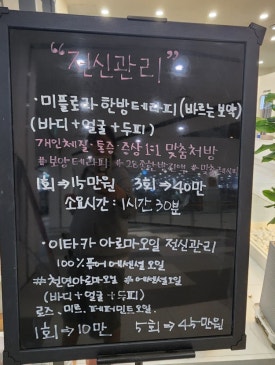 "전신관리"
· 미플로라 한방테라피(바르는 보약)
(바디+얼굴+두피)
개인체질·통증 증상 1:1 맞춤처방
#보양테라피
1회→15만원 3회→40만
소요시간 : 1시간 30분
· 이타카 아로마오일 전신관리
100% 퓨어에센셜 오일
#천연아로마오일 #에센셜오일
(바디+얼굴+두피)
로즈, 민트, 페퍼민트오일.
1회→10만 5회→45만원